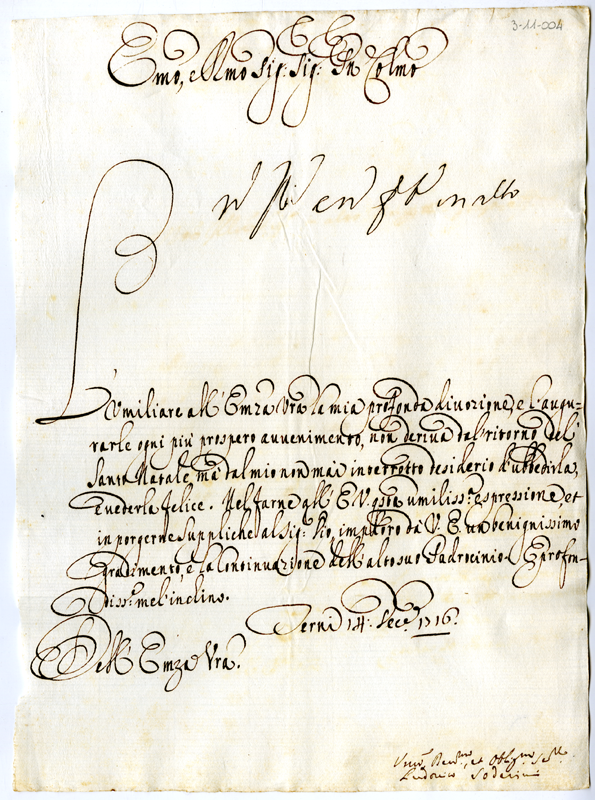 3-11-004
Emo, e Rmo Sig: Sig: Pn Colmo
L'umiliare all'Emza Vra la mia profonda divozione, e l'augu-
rarle ogni più prospero avvenimento, non deriva dal ritorno del
Santo Natale, ma dal mio non mai interrotto desiderio d'ubbedirla,
e vederla felice. Nel farne all'E.V. qsta umiliss:a espressione, et
in porgerne suppliche al Sig: Dio, imploro da V. E. un benignissimo
gradimento, e la continuazione dell'alto suo Padrocinio. E profon-
diss:e mel'inclino.
Terni 14: Dece 1716.
Dell'Emza Vra.
Umo Devmo, et Obbmo Se
Ludovico Soderini